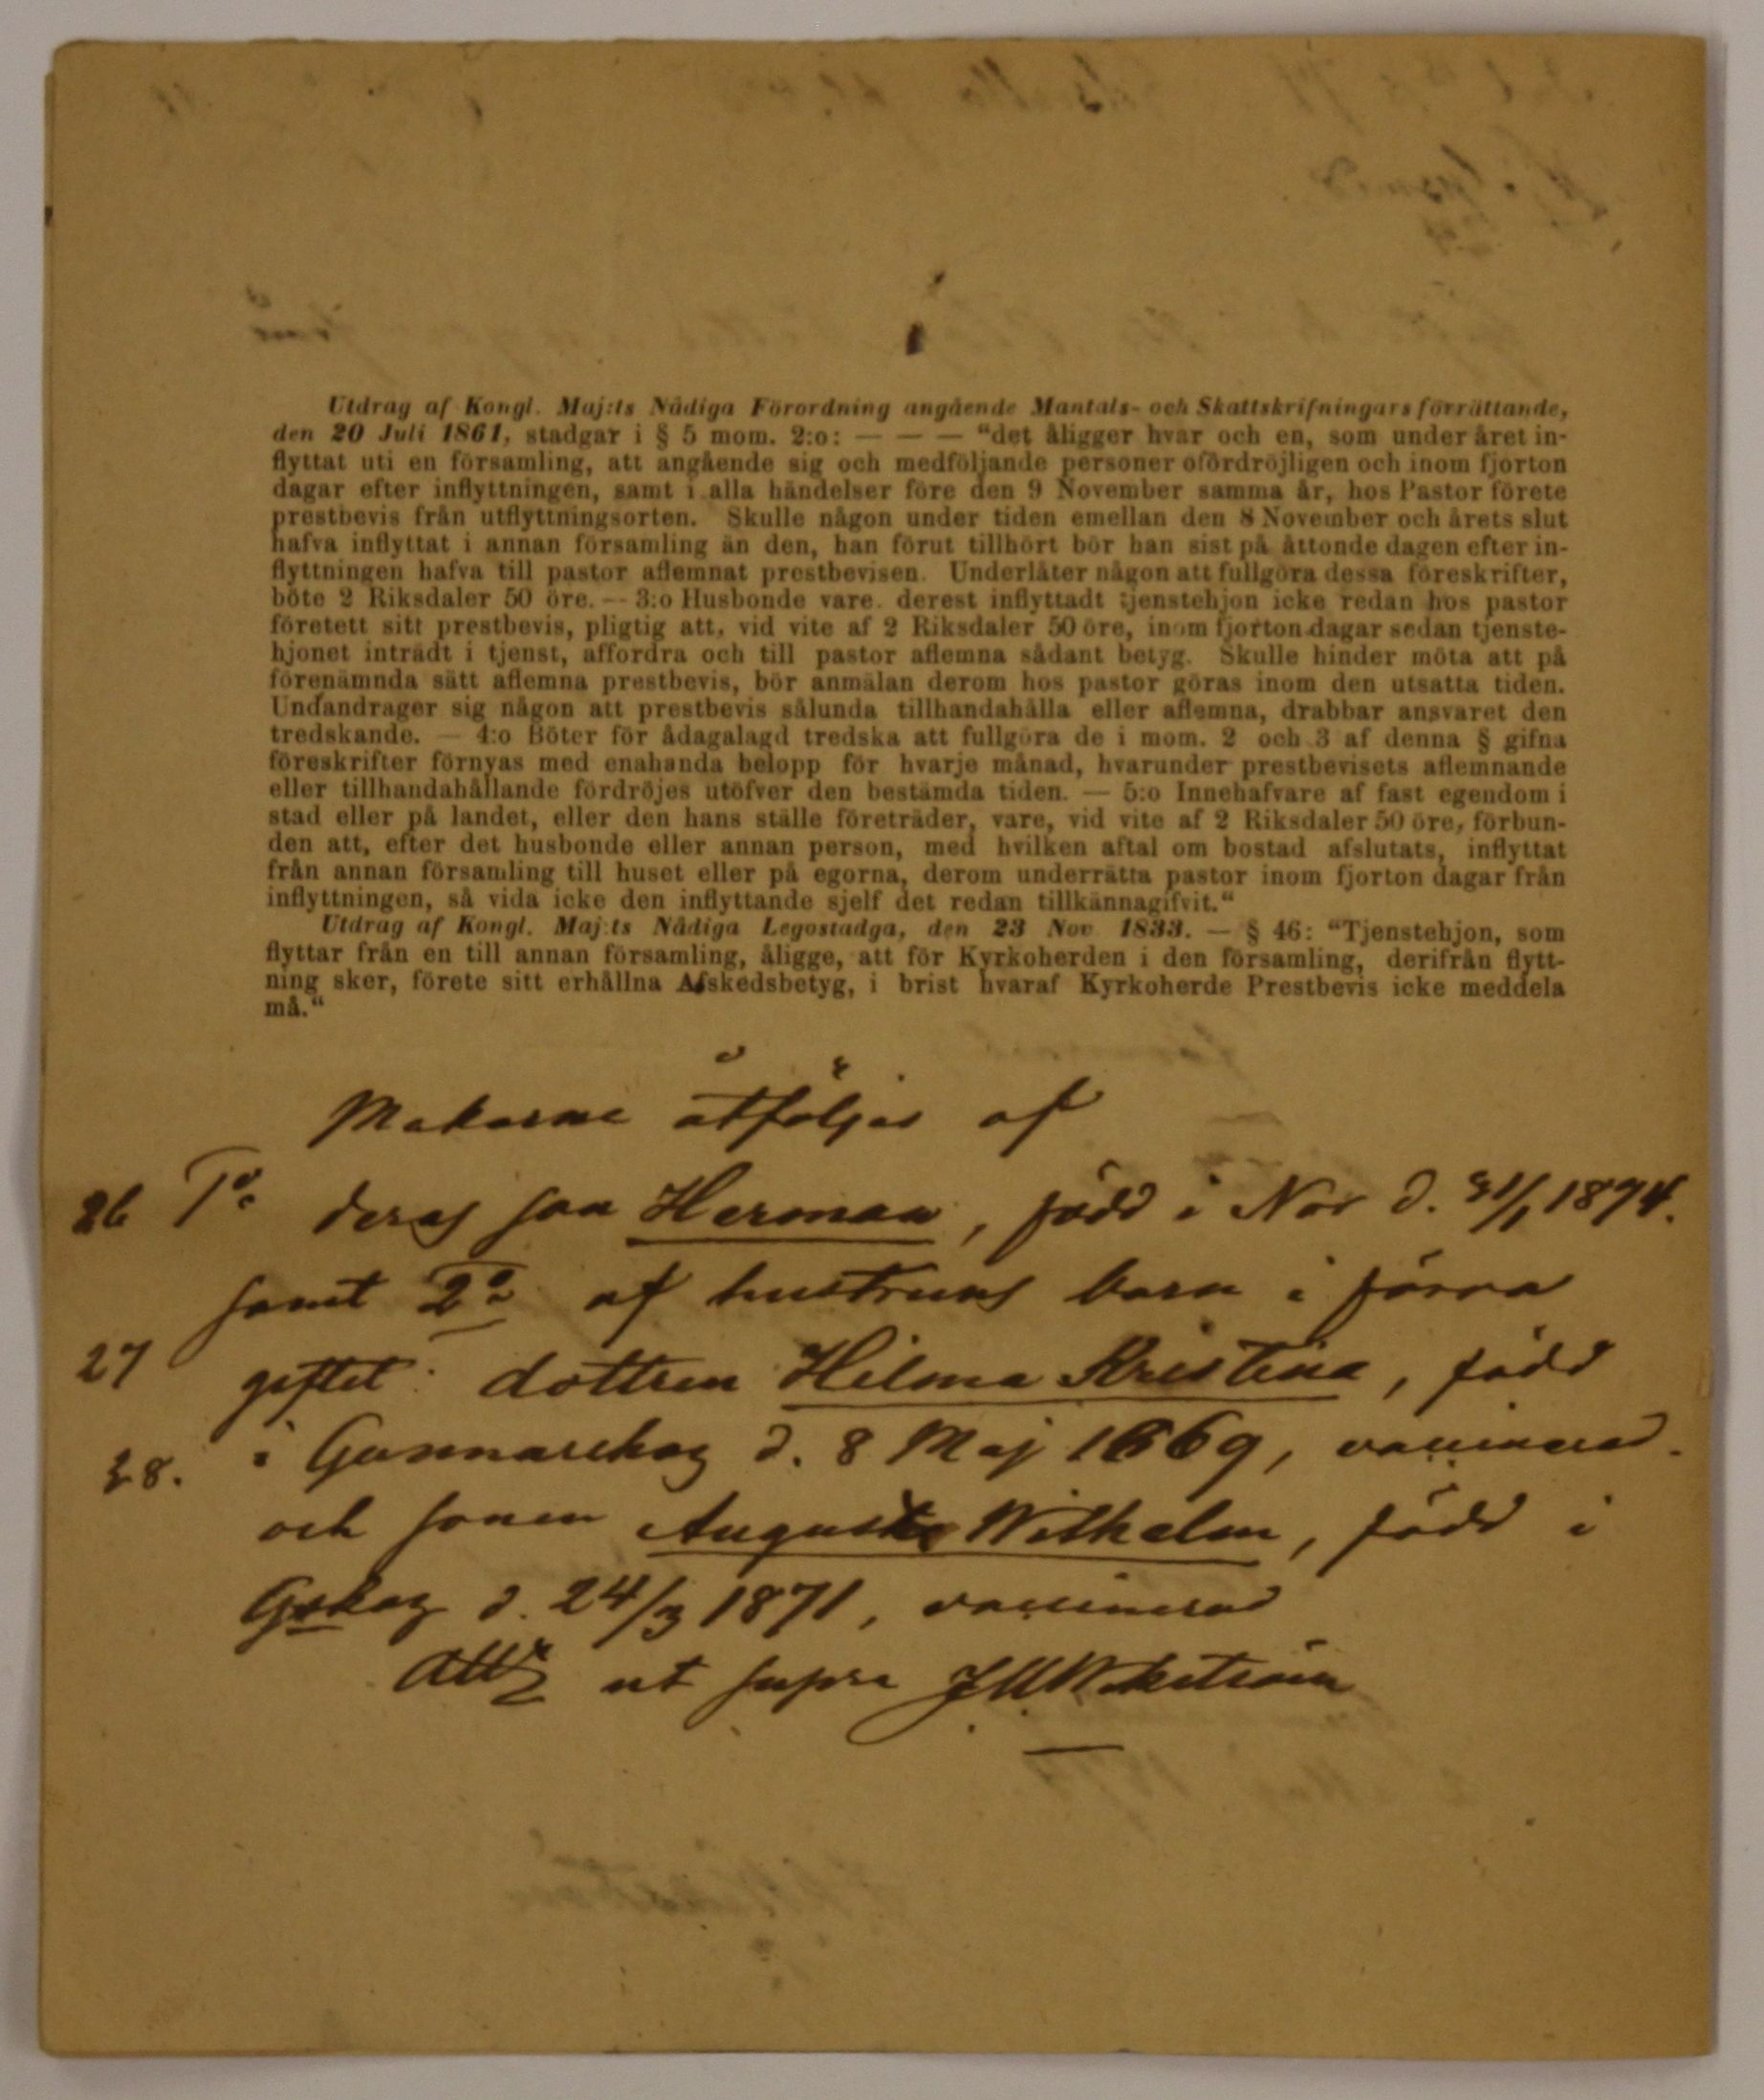 Utdrag af Kongl. Maj:ts Nådiga Förordning angående Mantals- och Skattskrifningars förrättande,
den 20 Juli 1861, stadgar i § 5 mom. 2:o: — — — “det åligger hvar och en, som under året in-
flyttat uti en församling, att angående sig och medföljande personer ofördröjligen och inom fjorton
dagar efter inflyttningen, samt i alla händelser före den 9 November samma år, hos Pastor förete
prestbevis från utflyttningsorten. Skulle någon under tiden emellan den 8 November och årets slut
hafva inflyttat i annan församling än den, han förut tillhört bör han sist på åttonde dagen efter in-
flyttningen hafva till pastor aflemnat prestbevisen. Underlåter någon att fullgöra dessa föreskrifter,
böte 2 Riksdaler 50 öre. — 3:o Husbonde vare. derest inflyttadt tjenstehjon icke redan hos pastor
företett sitt prestbevis, pligtig att, vid vite af 2 Riksdaler 50 öre, inom fjorton dagar sedan tjenste-
hjonet inträdt i tjenst, affordra och till pastor aflemna sådant betyg. Skulle hinder möta att på
förenämnda sätt aflemna prestbevis, bör anmälan derom hos pastor göras inom den utsatta tiden.
Undandrager sig någon att prestbevis sålunda tillhandahålla eller aflemna, drabbar ansvaret den
tredskande. — 4:o Böter för ådagalagd tredska att fullgöra de i mom. 2 och 3 af denna § gifna
föreskrifter förnyas med enahanda belopp för hvarje månad, hvarunder prestbevisets aflemnande
eller tillhandahållande fördröjes utöfver den bestämda tiden. — 5:o Innehafvare af fast egendom i
stad eller på landet, eller den hans ställe företräder, vare, vid vite af 2 Riksdaler 50 öre, förbun-
den att, efter det husbonde eller annan person, med hvilken aftal om bostad afslutats, inflyttat
från annan församling till huset eller på egorna, derom underrätta pastor inom fjorton dagar från
inflyttningen, så vida icke den inflyttande sjelf det redan tillkännagifvit.“
Utdrag af Kongl. Maj:ts Nådiga Legostadga, den 23 Nov 1833. — § 46: “Tjenstehjon, som
flyttar från en till annan församling, åligge, att för Kyrkoherden i den församling, derifrån flytt-
ning sker, förete sitt erhållna Afskedsbetyg, i brist hvaraf Kyrkoherde Prestbevis icke meddela
må.“
Makarne åtföljas af
26 1o deras son Herman, född i Nor d. 31/1 1874.
samt 2o af hustruns barn i förra
27 giftet: dottren Hilma Kristina, född
28. i Gunnarskog d. 8 Maj 1869, vaccinerad.
och sonen August Wilhelm, född i
Gskog d. 24/3 1871, vaccinerad
ut supra